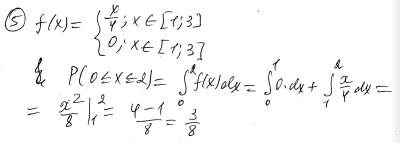 ⑤ f(x)= { x/4; x∈[1;3]
{ 0; x∈[1;3]
P(0≤x≤2)= ∫₀² f(x)dx = ∫₀¹ 0·dx + ∫₁² x/4 dx =
= x²/8 |₁² = 4-1/8 = 3/8